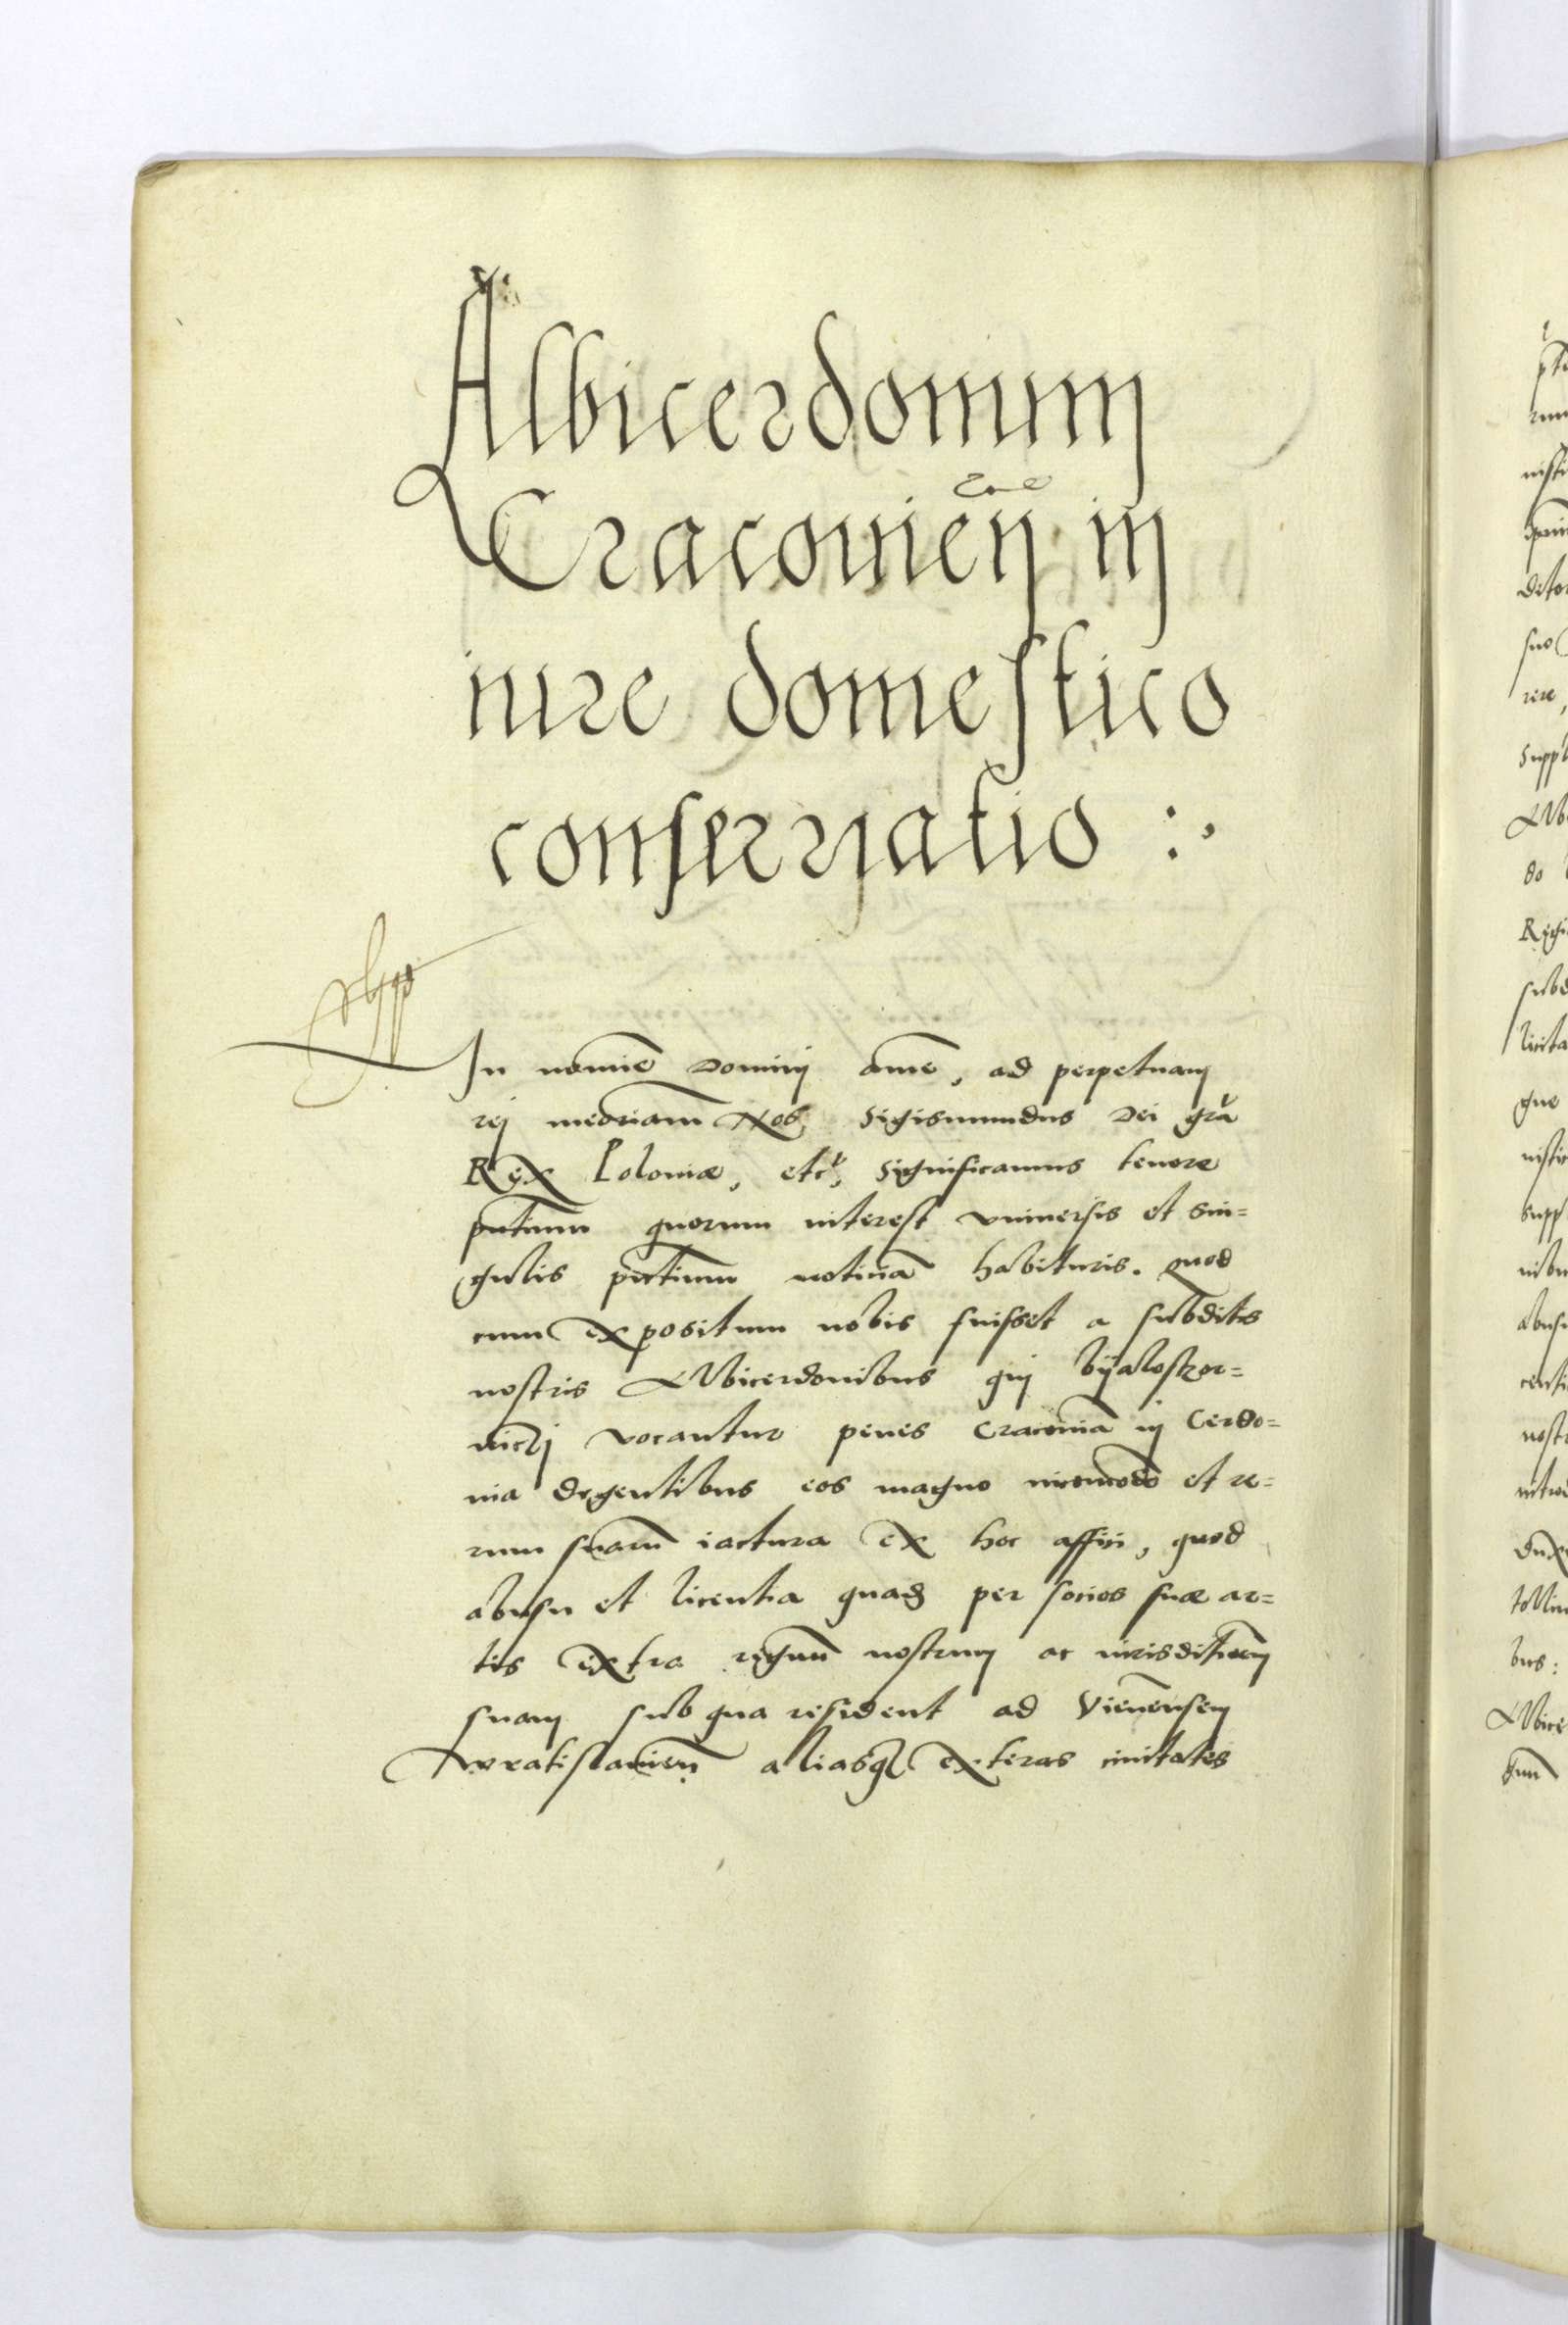 Albicerdonum
Cracouień in
iure domestico
conseruatio :
In nomie Domini ame, ad perpetuam
rej meoriam Nos Sigismundus Dei gra
Rex Poloniæ, etc, significamus tenore
pntium quorum interest vniuersis et sin=
gulis pntium notitia habituris. quod
cum expositum nobis fuisset a subditis
nostris Albicerdonibus qui bijaloskor=
nicij vocantur penes Cracouia in Cerdo=
nia degentibus eos magno incomodo et re=
rum suarum iactura ex hoc affici, quod
abusu et licentia quad per socios suæ ar=
tis extra regnu nostrum ac iurisditionem
suam sub qua resident ad Vienensem
Wratislauien aliasq exteras ciuitates